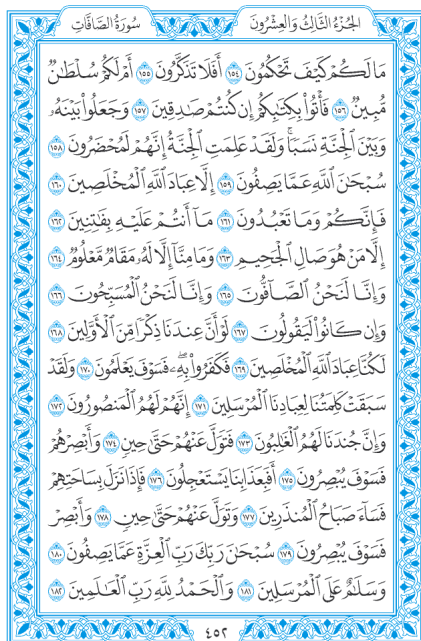 الجُزْءُ الثَّالِثُ وَالعِشْرُونَ
سُورَةُ الصَّافَّاتِ
مَا لَكُمْ كَيْفَ تَحْكُمُونَ ١٥٤ أَفَلَا تَذَكَّرُونَ ١٥٥ أَمْ لَكُمْ سُلْطَٰنٌ
مُّبِينٌ ١٥٦ فَأْتُوا۟ بِكِتَٰبِكُمْ إِن كُنتُمْ صَٰدِقِينَ ١٥٧ وَجَعَلُوا۟ بَيْنَهُۥ
وَبَيْنَ ٱلْجِنَّةِ نَسَبًا ۚ وَلَقَدْ عَلِمَتِ ٱلْجِنَّةُ إِنَّهُمْ لَمُحْضَرُونَ ١٥٨
سُبْحَٰنَ ٱللَّهِ عَمَّا يَصِفُونَ ١٥٩ إِلَّا عِبَادَ ٱللَّهِ ٱلْمُخْلَصِينَ ١٦٠
فَإِنَّكُمْ وَمَا تَعْبُدُونَ ١٦١ مَآ أَنتُمْ عَلَيْهِ بِفَٰتِنِينَ ١٦٢
إِلَّا مَنْ هُوَ صَالِ ٱلْجَحِيمِ ١٦٣ وَمَا مِنَّآ إِلَّا لَهُۥ مَقَامٌ مَّعْلُومٌ ١٦٤
وَإِنَّا لَنَحْنُ ٱلصَّآفُّونَ ١٦٥ وَإِنَّا لَنَحْنُ ٱلْمُسَبِّحُونَ ١٦٦
وَإِن كَانُوا۟ لَيَقُولُونَ ١٦٧ لَوْ أَنَّ عِندَنَا ذِكْرًا مِّنَ ٱلْأَوَّلِينَ ١٦٨
لَكُنَّا عِبَادَ ٱللَّهِ ٱلْمُخْلَصِينَ ١٦٩ فَكَفَرُوا۟ بِهِۦ ۖ فَسَوْفَ يَعْلَمُونَ ١٧٠ وَلَقَدْ
سَبَقَتْ كَلِمَتُنَا لِعِبَادِنَا ٱلْمُرْسَلِينَ ١٧١ إِنَّهُمْ لَهُمُ ٱلْمَنصُورُونَ ١٧٢
وَإِنَّ جُندَنَا لَهُمُ ٱلْغَٰلِبُونَ ١٧٣ فَتَوَلَّ عَنْهُمْ حَتَّىٰ حِينٍ ١٧٤ وَأَبْصِرْهُمْ
فَسَوْفَ يُبْصِرُونَ ١٧٥ أَفَبِعَذَابِنَا يَسْتَعْجِلُونَ ١٧٦ فَإِذَا نَزَلَ بِسَاحَتِهِمْ
فَسَآءَ صَبَاحُ ٱلْمُنذَرِينَ ١٧٧ وَتَوَلَّ عَنْهُمْ حَتَّىٰ حِينٍ ١٧٨ وَأَبْصِرْ
فَسَوْفَ يُبْصِرُونَ ١٧٩ سُبْحَٰنَ رَبِّكَ رَبِّ ٱلْعِزَّةِ عَمَّا يَصِفُونَ ١٨٠
وَسَلَٰمٌ عَلَى ٱلْمُرْسَلِينَ ١٨١ وَٱلْحَمْدُ لِلَّهِ رَبِّ ٱلْعَٰلَمِينَ ١٨٢
٤٥٢